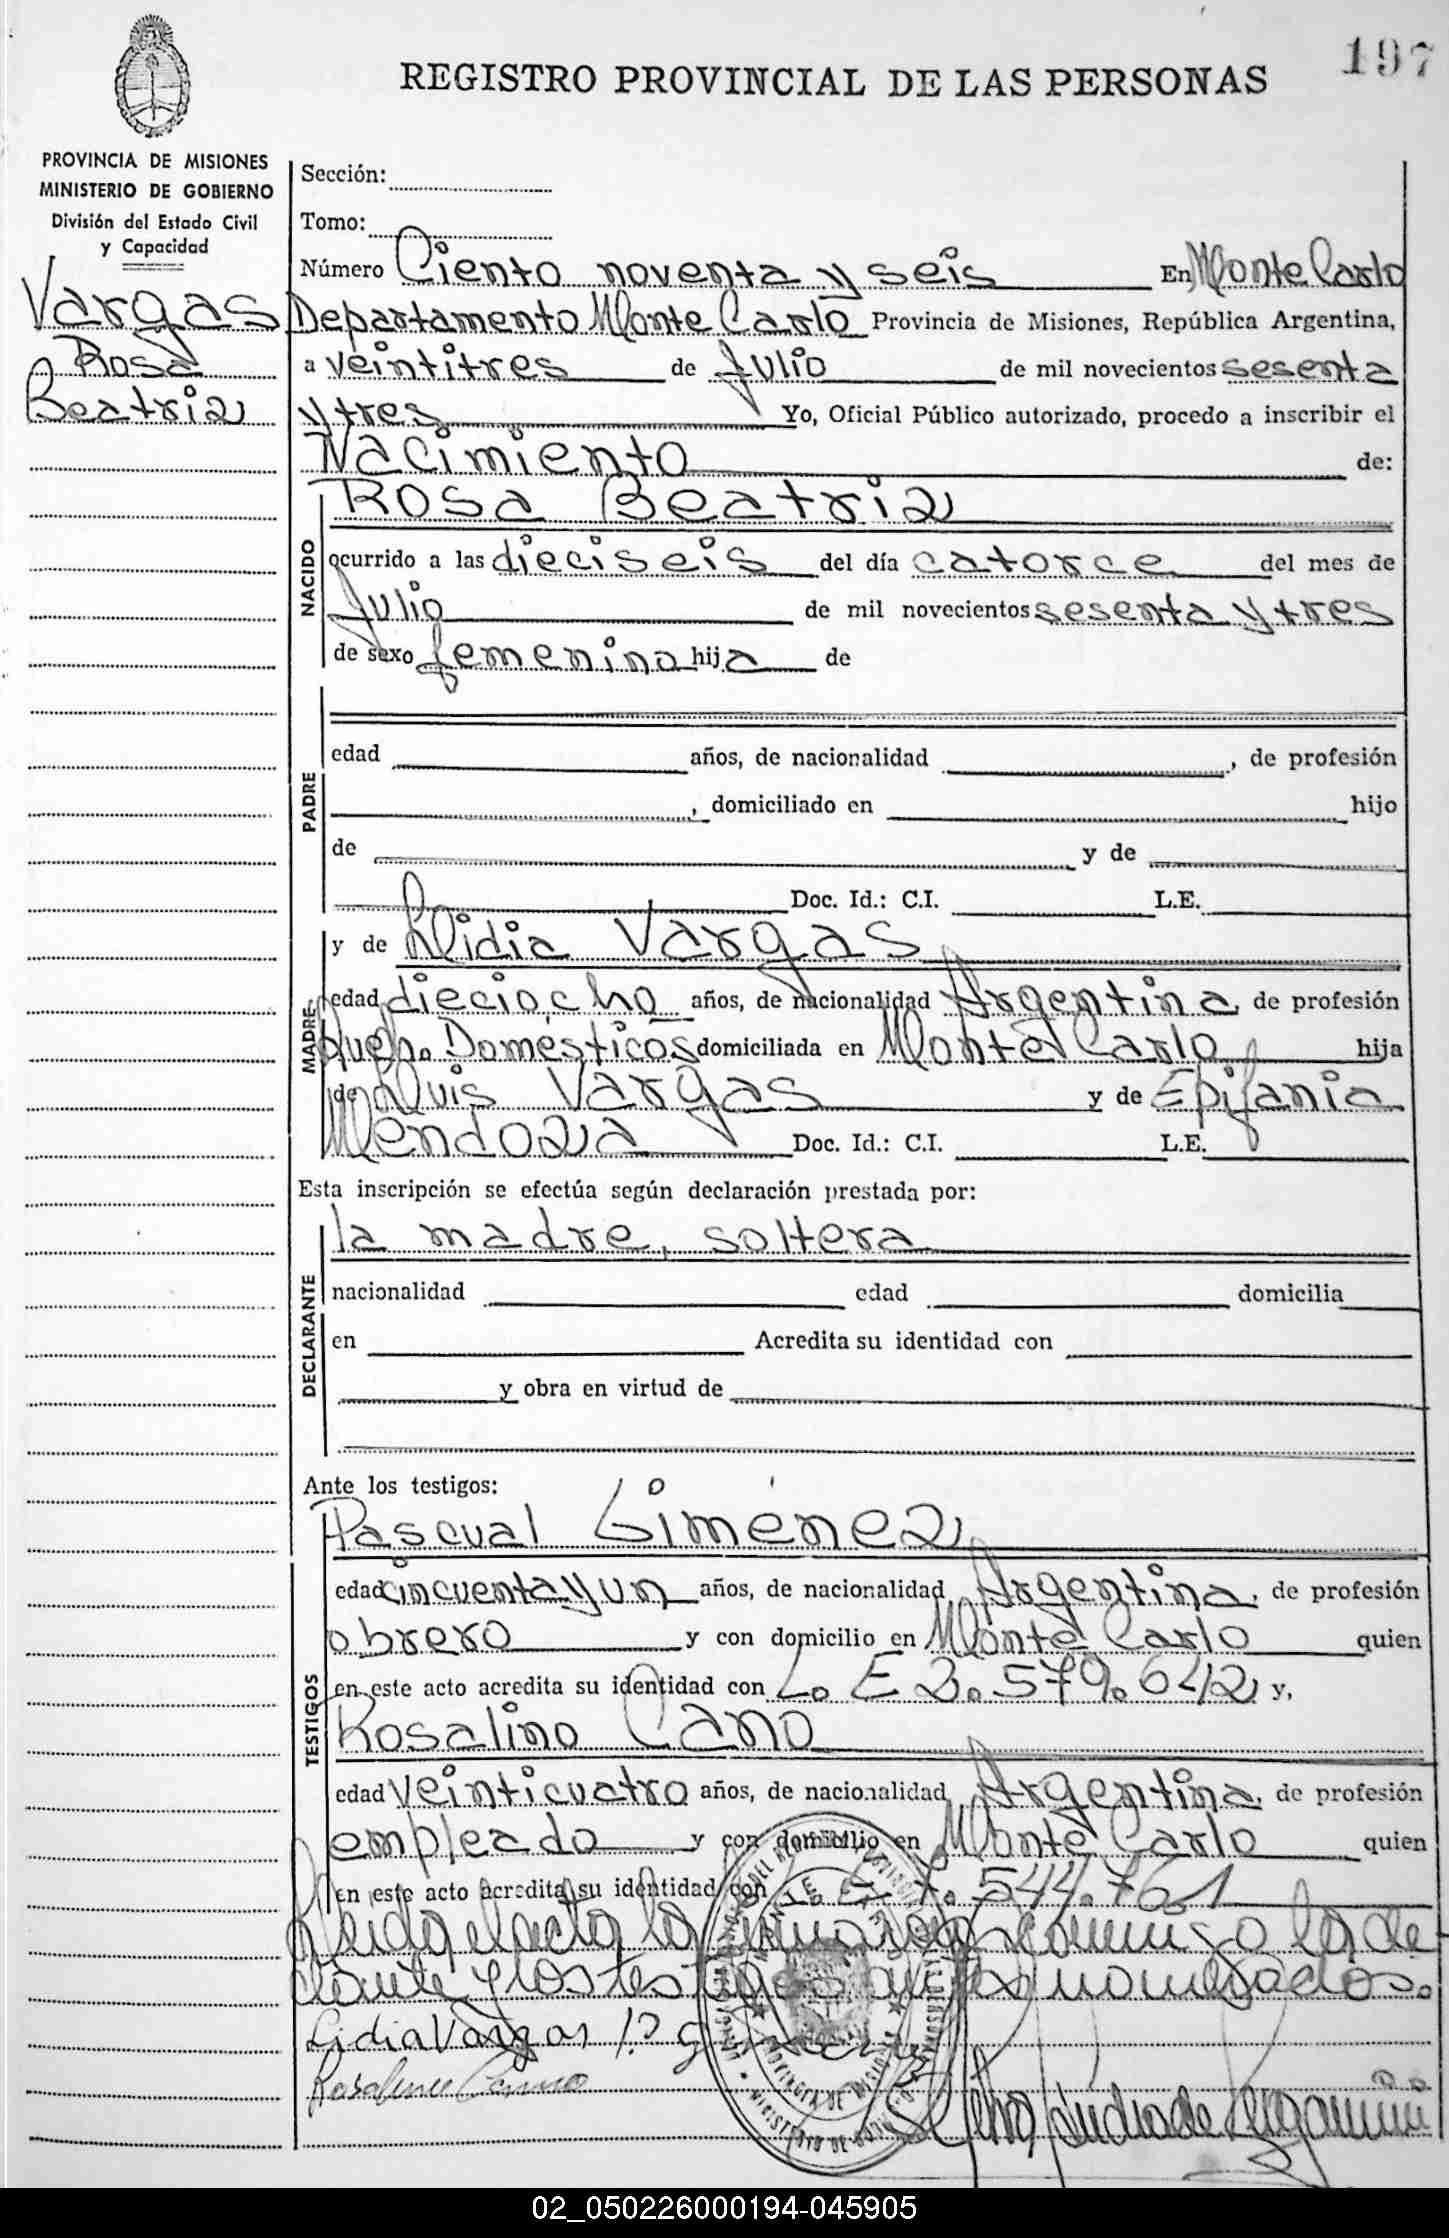 197
REGISTRO PROVINCIAL DE LAS PERSONAS
PROVINCIA DE MISIONES
MINISTERIO DE GOBIERNO
División del Estado Civil
y Capacidad
Vargas
Rosa
Beatriz
Sección:
Tomo:
Número Ciento noventa y seis En Monte Carlo
Departamento Monte Carlo Provincia de Misiones, República Argentina,
a veintitres de Julio de mil novecientos sesenta
y tres Yo, Oficial Público autorizado, procedo a inscribir el
Nacimiento de:
NACIDO
Rosa Beatriz
ocurrido a las dieciseis del día catorce del mes de
Julio de mil novecientos sesenta y tres
de sexo femenino hija de
PADRE
edad años, de nacionalidad , de profesión
, domiciliado en hijo
de y de
Doc. Id.: C.I. L.E.
MADRE
y de Lidia Vargas
edad dieciocho años, de nacionalidad Argentina, de profesión
Queh. Domésticos domiciliada en Monte Carlo hija
de Luis Vargas y de Epifania
Mendoza Doc. Id.: C.I. L.E.
Esta inscripción se efectúa según declaración prestada por:
DECLARANTE
la madre, soltera
nacionalidad edad domicilia
en Acredita su identidad con
y obra en virtud de
Ante los testigos:
TESTIGOS
Pascual Giménez
edad cincuenta y un años, de nacionalidad Argentina, de profesión
obrero y con domicilio en Monte Carlo quien
en este acto acredita su identidad con L. E 2.579.642 y,
Rosalino Cano
edad veinticuatro años, de nacionalidad Argentina, de profesión
empleado y con domicilio en Monte Carlo quien
en este acto acredita su identidad con L. E 7.544.761
Leida el acta la firmaron conmigo la de
clarante y los testigos arriba nombrados.
Lidia Vargas
Rosalino Cano
02_050226000194-045905